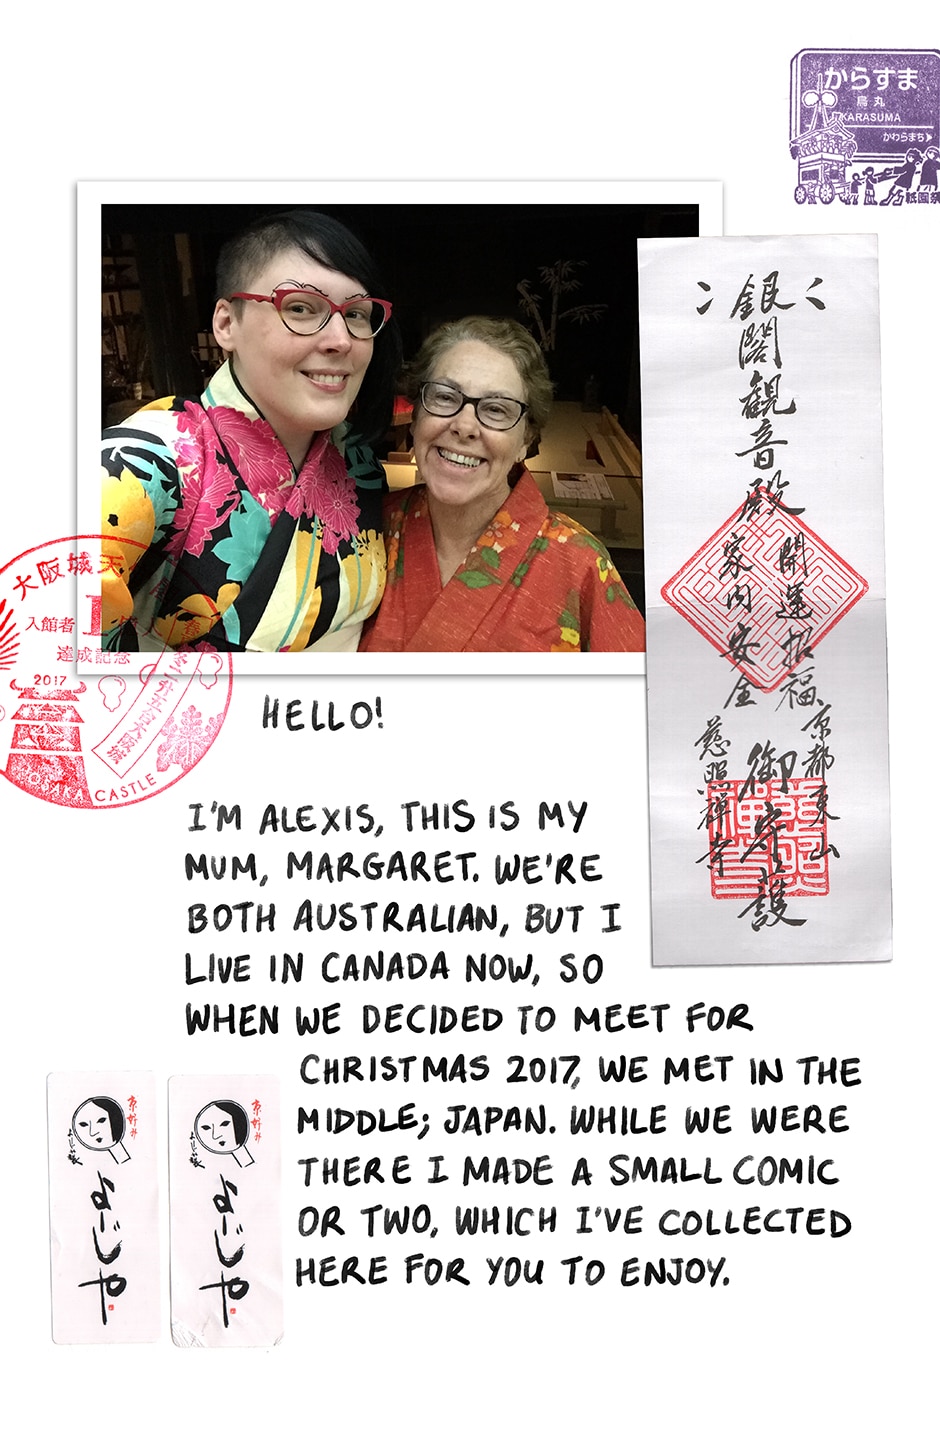 からすま
烏丸
KARASUMA
かわらまち
祇園祭
銀閣観音殿
開運招福
家内安全
京都東山
慈照禅寺
御守護
大阪城天
入館者
達成記念
2017
OSAKA CASTLE
HELLO!
I'M ALEXIS, THIS IS MY
MUM, MARGARET. WE'RE
BOTH AUSTRALIAN, BUT I
LIVE IN CANADA NOW, SO
WHEN WE DECIDED TO MEET FOR
CHRISTMAS 2017, WE MET IN THE
MIDDLE; JAPAN. WHILE WE WERE
THERE I MADE A SMALL COMIC
OR TWO, WHICH I'VE COLLECTED
HERE FOR YOU TO ENJOY.
よーじや
よーじや